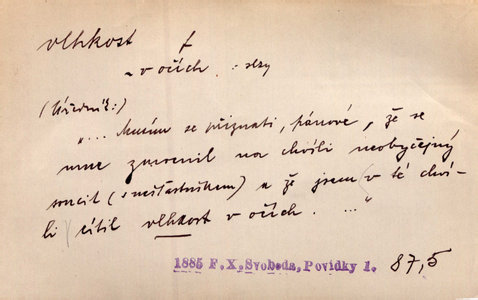 vlhkost f
~ v očích. : slzy
(Úředník:)
"... Musím se přiznati, pánové, že se
mne zmocnil na chvíli neobyčejný
soucit (s nešťastníkem) a že jsem v té chví-
li cítil vlhkost v očích. ..."
1885 F.X.Svoboda, Povídky 1. 87,5